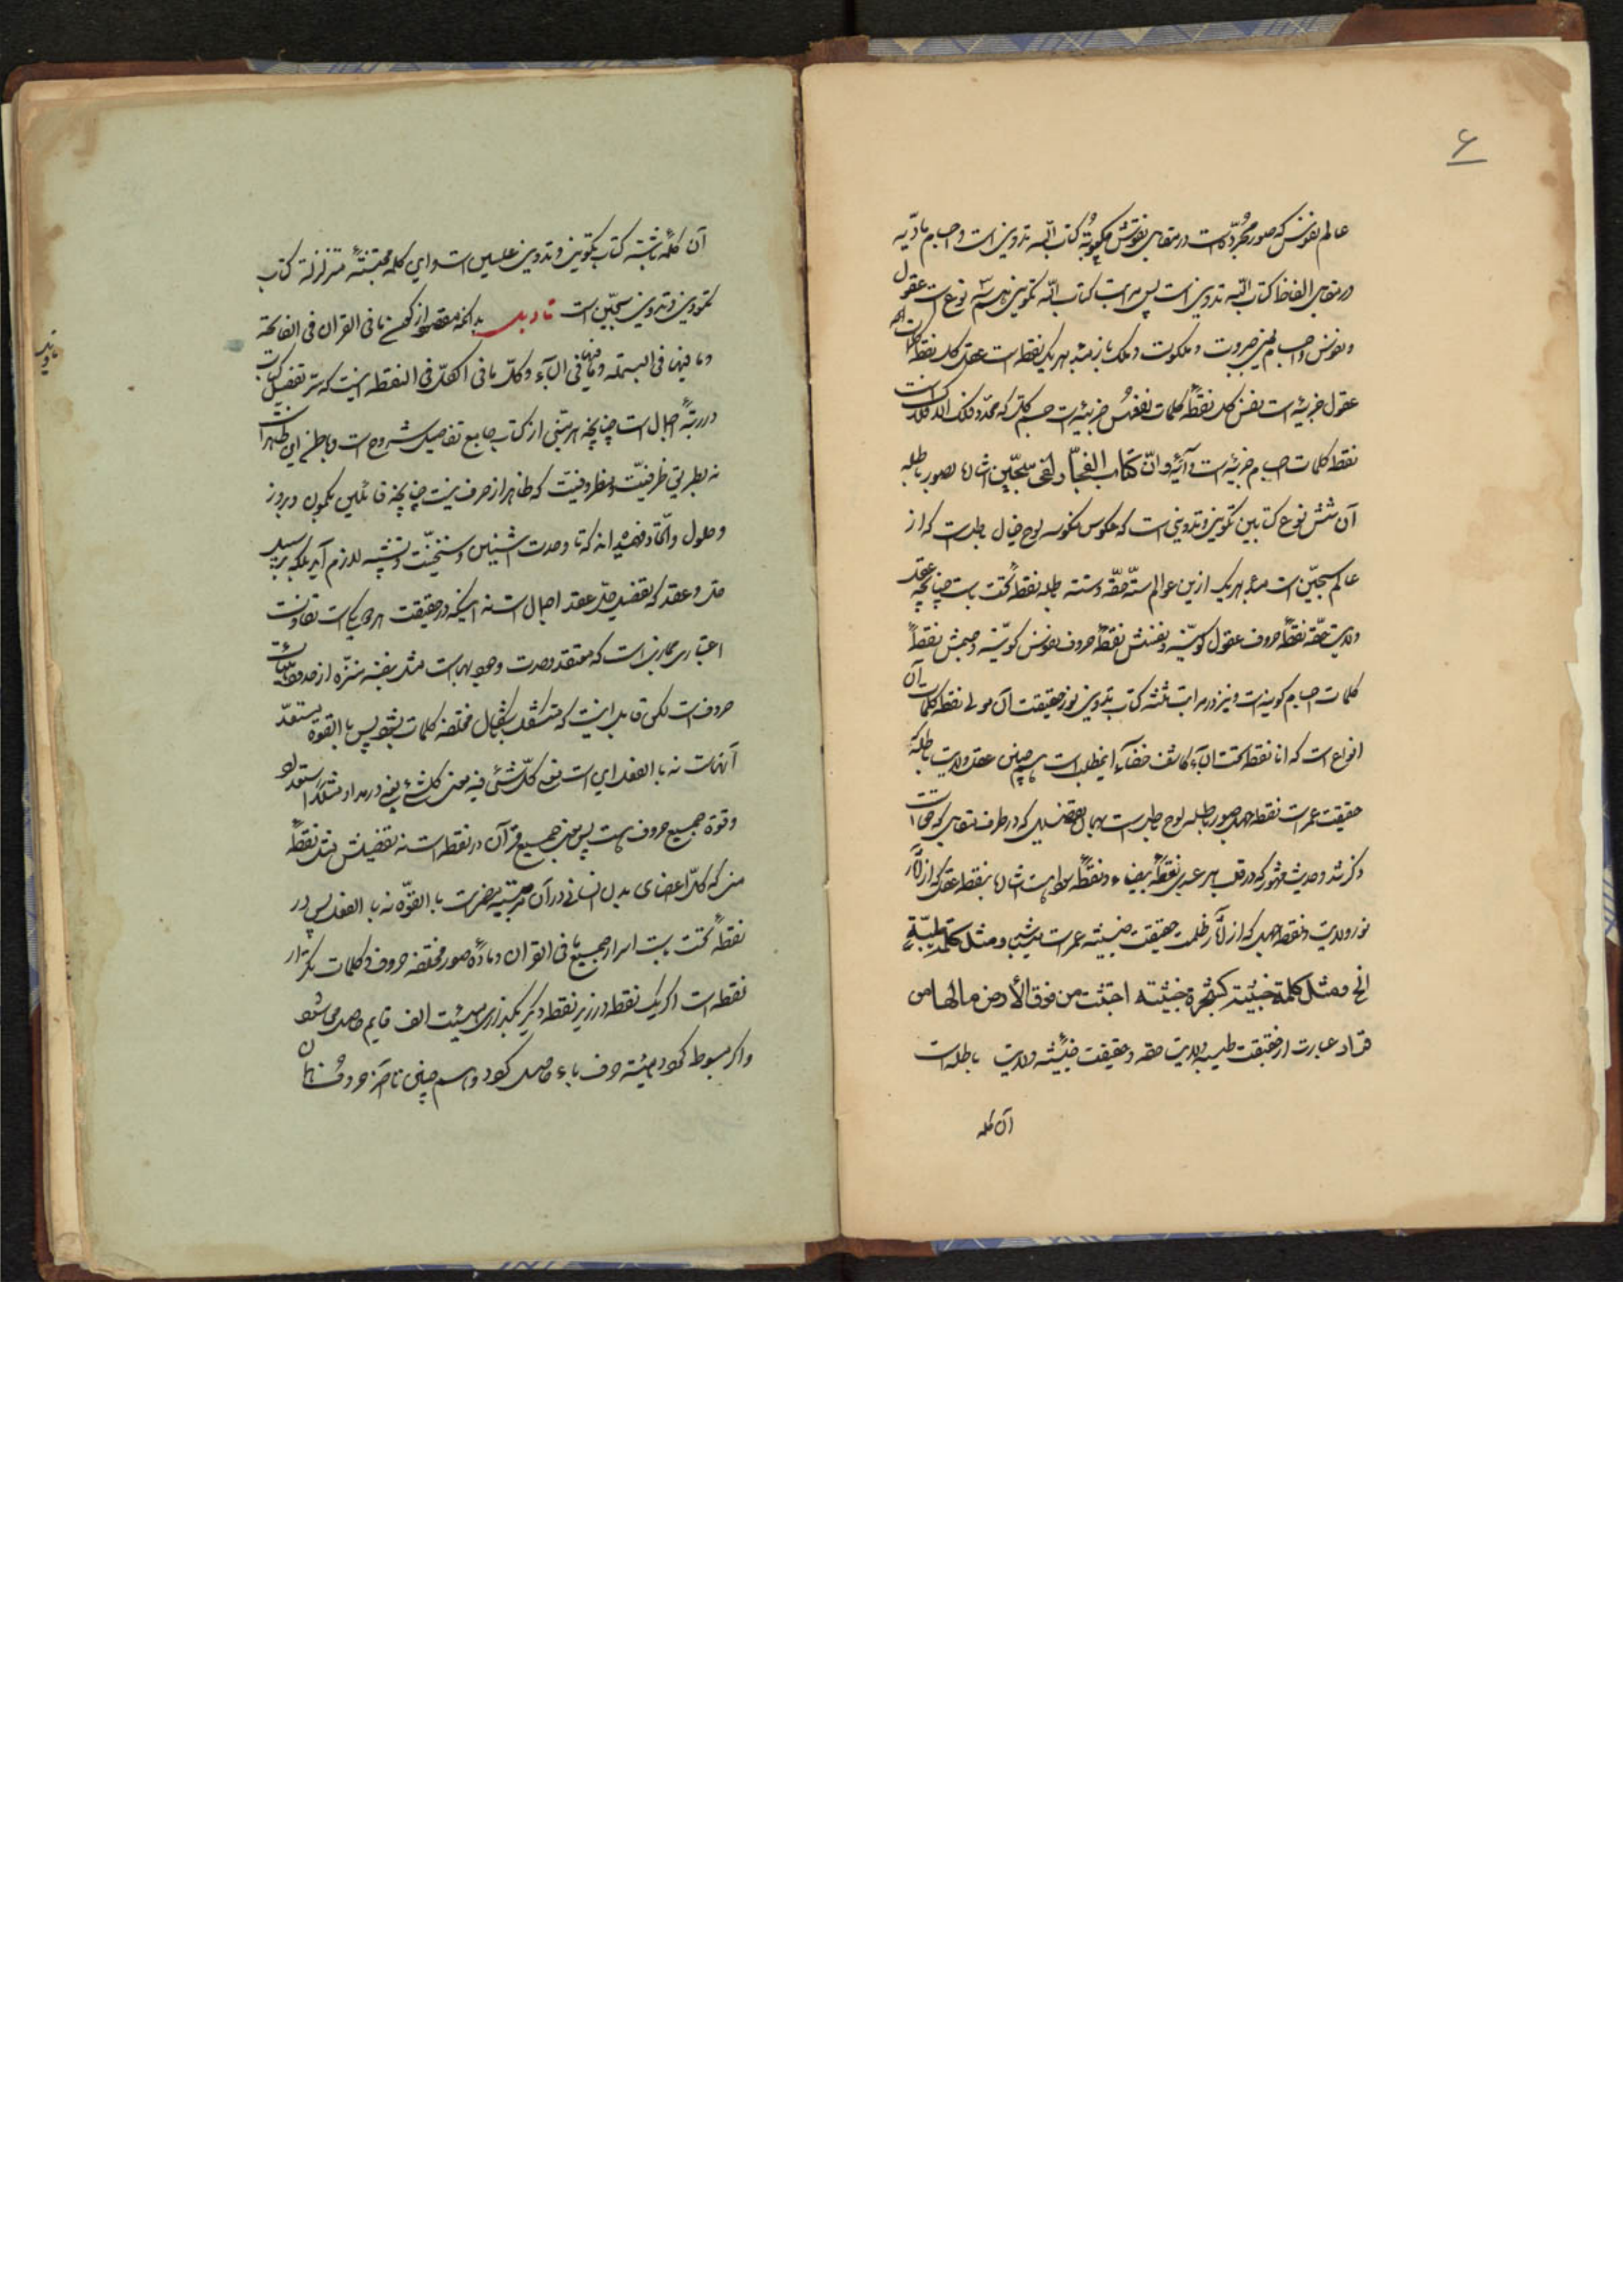 ۶
عالم نفوس که صور مجرّده است در مقابل نقوش مکتوبهٔ کتاب الله تدوین است و اجسام مادّیه
در مقابل الفاظ کتاب الله تدوین است پس مراتب کتاب الله تکوین نیز سه نوع است عقول
و نفوس و اجسام یعنی جبروت و ملکوت و ملک بازء هر یک نقطه است عقل کل نقطه کلمات
عقول جزئیه است نفس کل نقطهٔ کلمات نفوس جزئیه است جسم کل که محدّد فلک الافلاک است
نقطه کلمات اجسام جزئیه است و آیهٔ و انّ کتاب الفجّار لفی سجّین اشاره بصور باطله
آن شش نوع کتابین تکوین و تدوینی است که عکوس منکوسه لوح خیال باطل است که از
عالم سجّین است مبدء هر یک ازین عوالم ستّه حقّه و ستّه باطله نقطهٔ تحت باست چنانچه عقل
ولایت حقّه نقطهٔ حروف عقول کونیّه و نفسش نقطهٔ حروف نفوس کونیّه و جسمش نقطهٔ
کلمات اجسام کونیه است و نیز در مراتب ثلثه کتاب تدوین نور حقیقت آن مولی نقطه کلمات آن
انواع است که انا نقطة تحت الباء کاشف خفاء اینمطلب است همچنین عقل ولایت باطلهٔ
حقیقت عمر است نقطه جهل صور باطله لوح باطل است بهمان تفصیل که در طرف مقابل که حق است
ذکر شد و حدیث مشهور که در قلب هر عبدی نقطهٔ بیضاء و نقطهٔ سوداء هست اشاره بنقطه عقل که از آثار
نور ولایت و نقطه جهل که از آثار ظلمت حقیقت خبیثه عمر است میباشد و مثل کلمة طیّبة
الخ و مثل کلمة خبیثة کشجرة خبیثة اجتثت من فوق الأرض مالها من
قرار عبارت از حقیقت طیبه ولایت حقه و حقیقت خبیثه ولایت باطله است
آن کله
آن کلمهٔ ثابته کتاب تکوین و تدوین علیین است و این کلمه مجتثهٔ متزلزلة کتاب
تکوین و تدوین سجّین است تاویل بدانکه مقصود از کل ما فی القران فی الفاتحة
و ما فیها فی البسملة و ما فیها فی الباء و کلّ ما فی الکلّ فی النقطه اینست که سرّ تفصیل کتاب
در رتبهٔ اجمال است چنانچه هر متنی از کتاب جامع تفاصیل شروح است و باطن این ظهر است
نه بطریق ظرفیّت و مظروفیّت که ظاهر از حرف فیست چنانچه قائلین بکمون و بروز
و حلول و اتّحاد فهمیده‌اند که تا وحدت اثنینین و سنخیّت و تشبّه لازم آید بلکه بر سبیل
حلّ و عقد که تفصیل حلّ عقد اجمال است نه اینکه در حقیقت هر دو یکی است تفاوت
اعتباری مجازی است که معتقد وحدت وجودیهاست مثل بنفسه منزّه از حدود هیئات
حروف است لکن قابل اینست که متشکل باشکال مختلفه کلمات بشود پس بالقوه مستعدّ
آنهاست نه بالفعل این است معنی کلّ شئی فیه معنی کلشئ یعنی در مداد مثلا استعداد
و قوة جمیع حروف هست پس معنی جمیع قرآن در نقطه است نه تفصیلش مثل نقطهٔ
منی که کلّ اعضای بدن انسانی در آن مرتبه مضمر است بالقوّه نه بالفعل پس در
نقطهٔ تحت باست اسرار جمیع ما فی القران و مادهٔ صور مختلفه حروف و کلمات بتکرار
نقطه است اگر یک نقطه در زیر نقطه دیگر بگذاری هیئت الف قایم حاصل میشود
و اگر مبسوط کرد هیئته حرف باء حاصل گردد و همچنین تا آخر حروف
تاویل